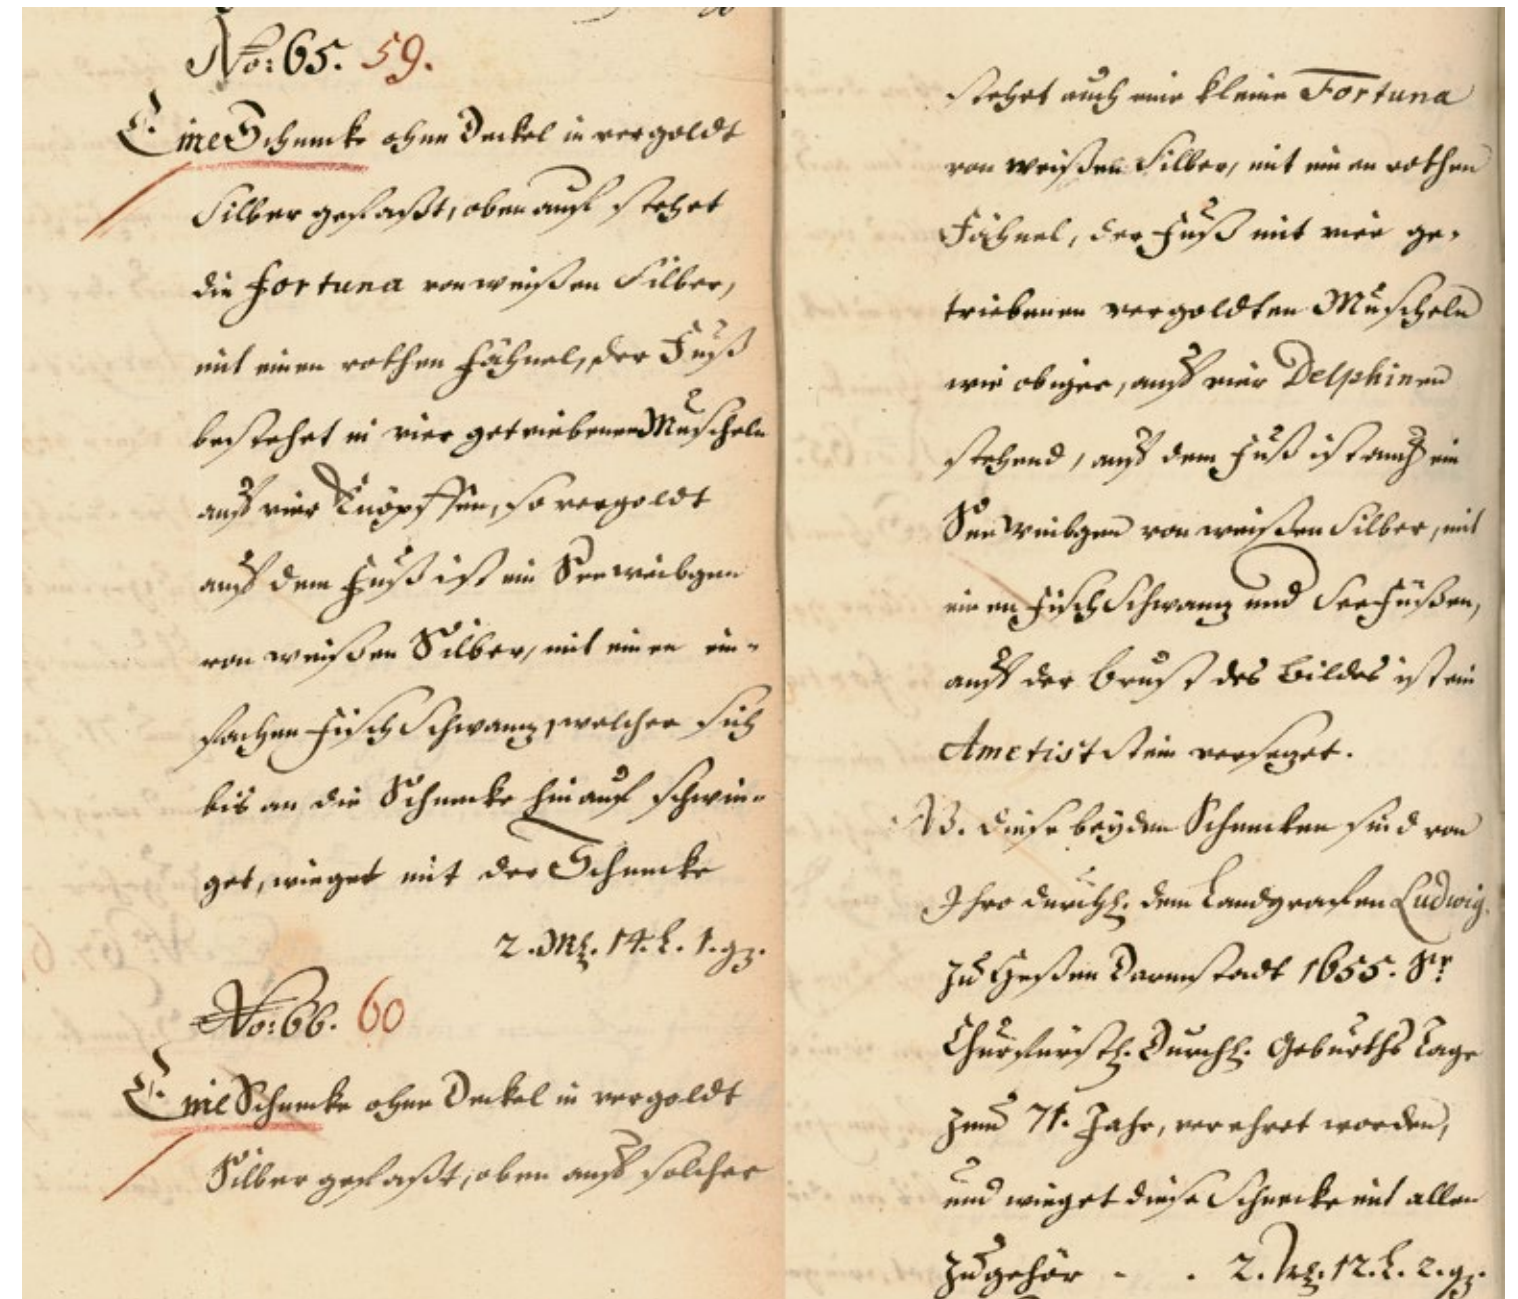 No: 65. 59.
Eine Schnecke ohne Deckel in vergoldt
Silber gefaßt, oben auf stehet
die Fortuna von weißen Silber,
mit einen rothen Fähnel, der Fuß
bestehet in vier getriebenen Muscheln
auff vier Knöpffen, so vergoldt
auff dem Fuß ist ein Seeweibgen
von weißen Silber, mit einen ein-
fachen Fisch Schwanz, welcher sich
bis an die Schnecke hinauf schwin-
get, wieget mit der Schnecke
2. Mk. 14. L. 1. qz.
No: 66. 60
Eine Schnecke ohne Deckel in vergoldt
Silber gefaßt, oben auff solcher
stehet auch eine kleine Fortuna
von weißen Silber, mit einen rothen
Fähnel, der Fuß mit vier ge-
triebenen vergoldten Muscheln
wie obiger, auff vier Delphinen
stehend, auff dem Fuß ist auch ein
See Weibgen von weißen Silber, mit
einen Fisch Schwanz und See Füßen,
auff der Brust des Bildes ist ein
Ametist Stein versezet.
NB. diese beyden Schnecken sind von
Ihro Durchl. dem Landgrafen Ludwig
zu Heßen Darmstadt 1655. Sr.
Churfürstl. Durchl. Geburths Tage
zum 71. Jahr, verehret worden,
und wieget diese Schnecke mit allen
zugehör - . 2. Mk. 12. L. 2. qz.